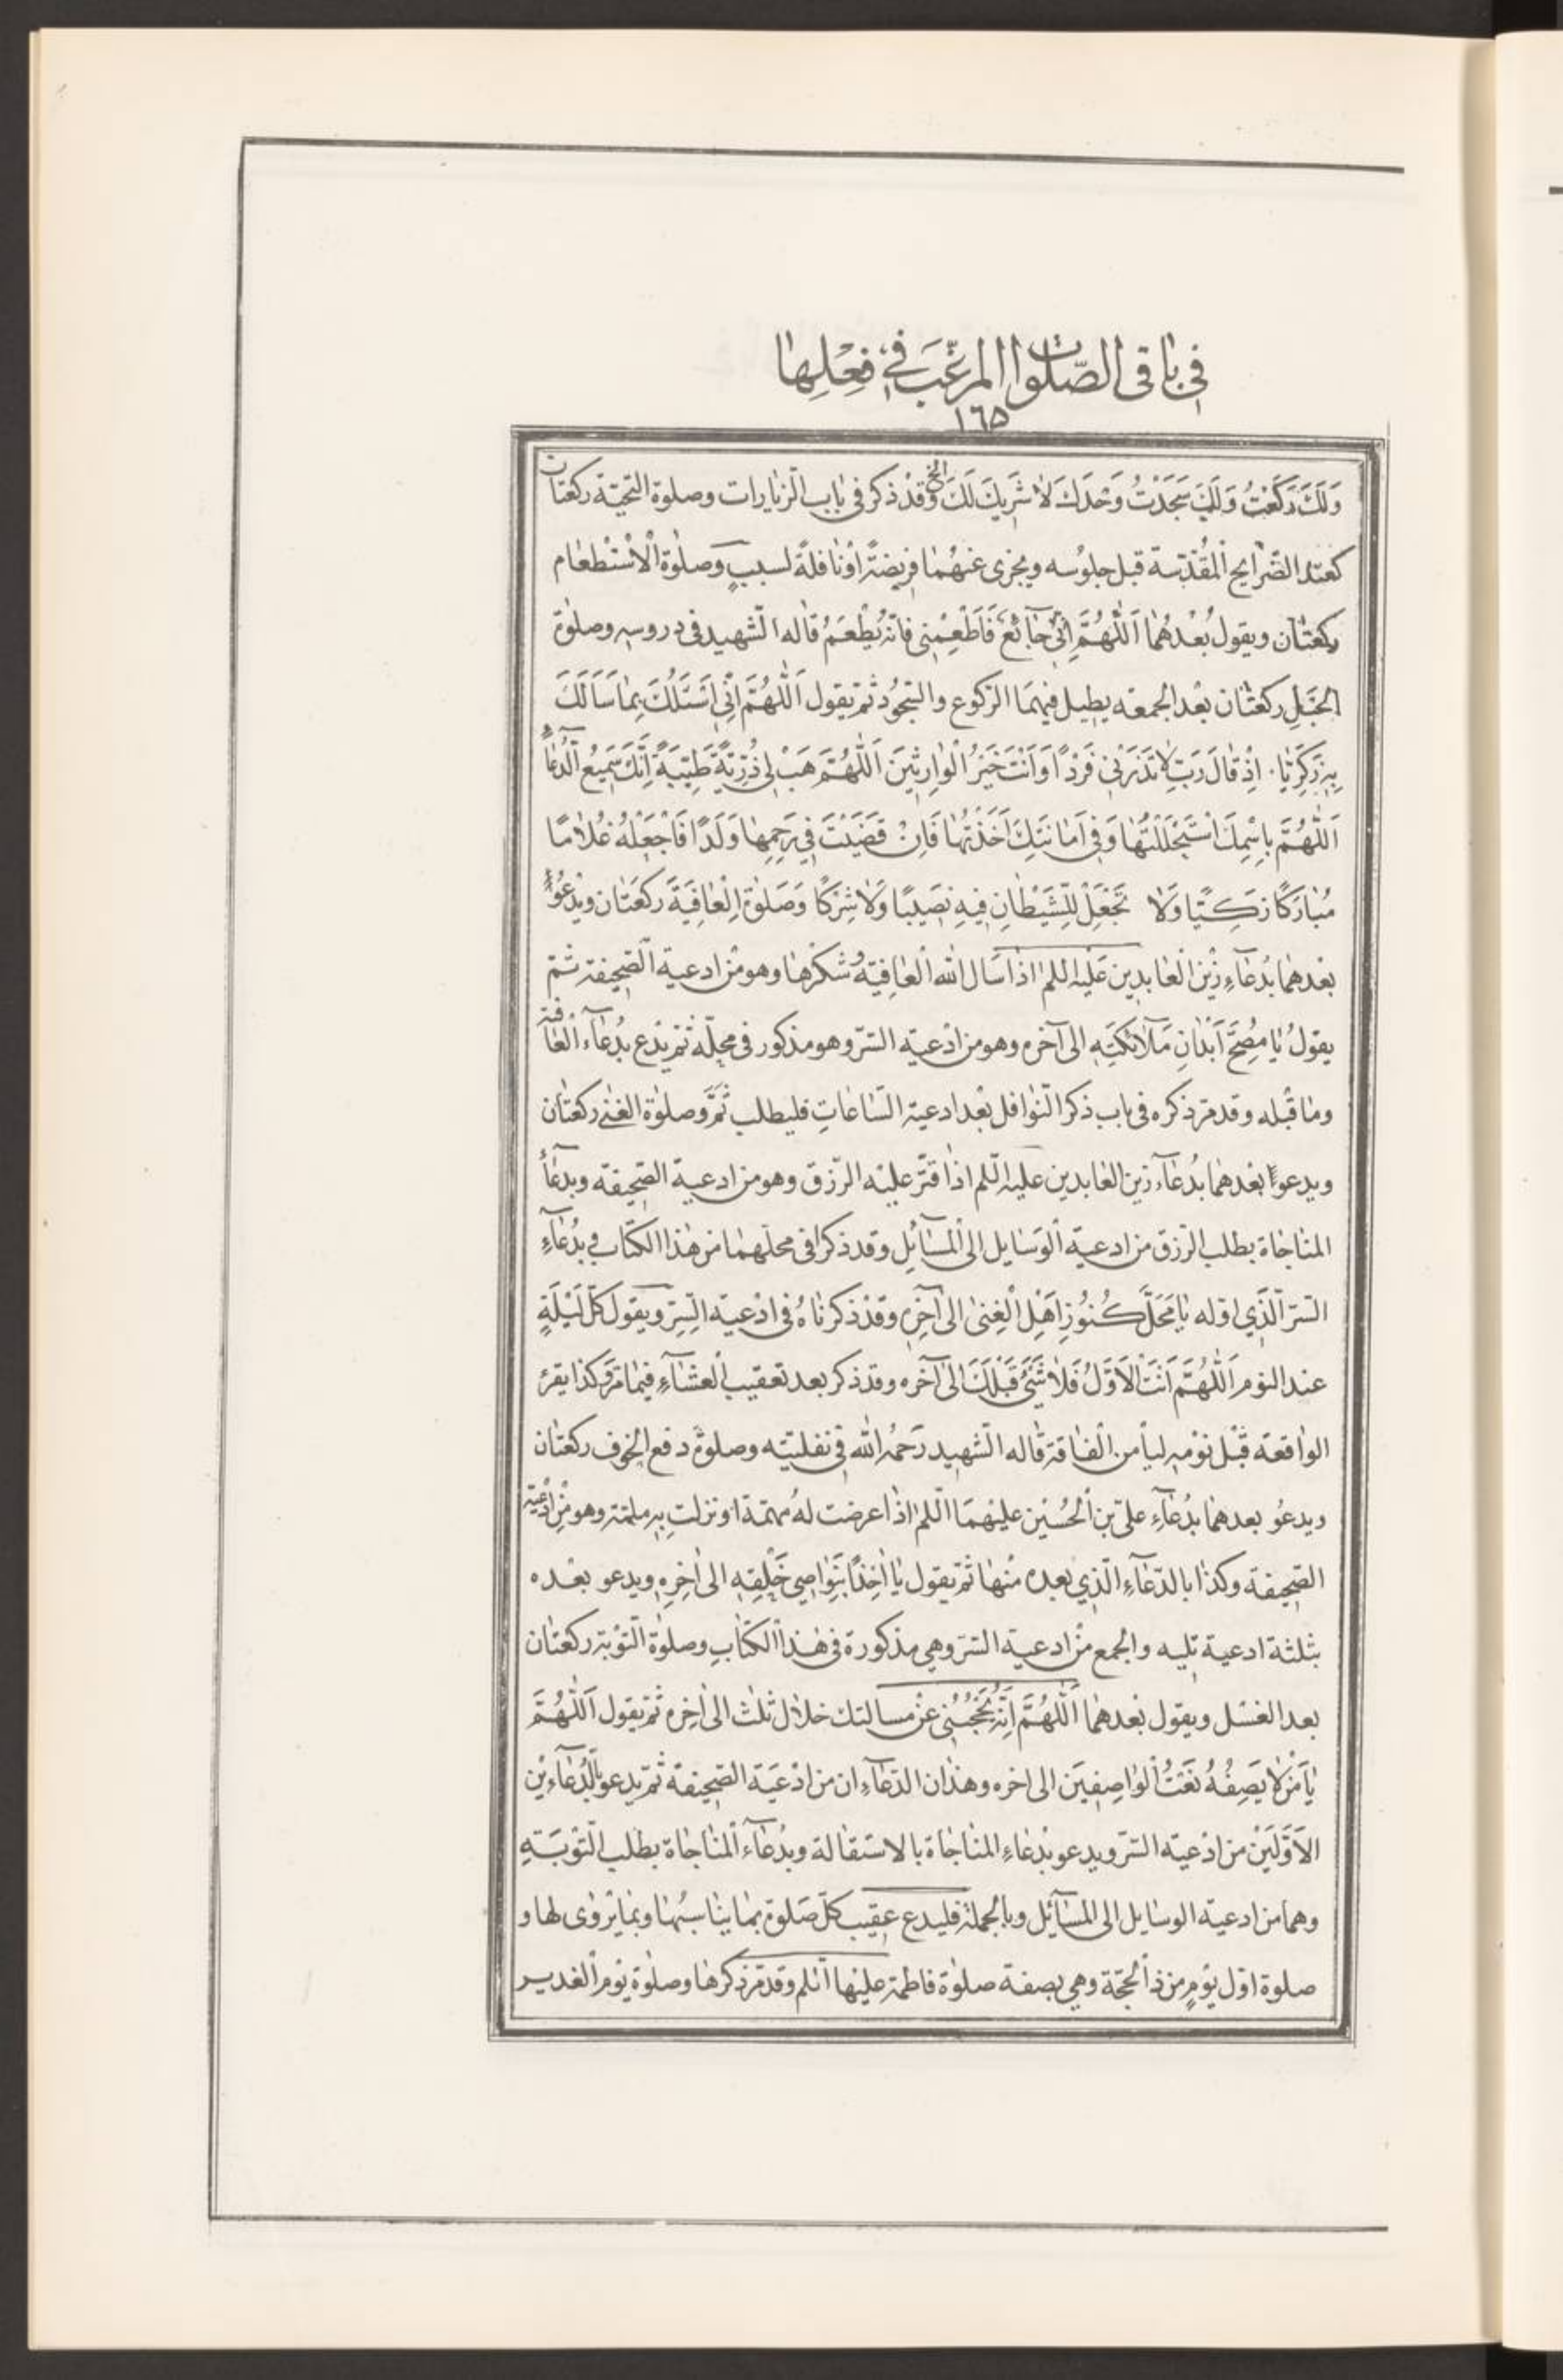 في باقي الصّلوات المرغّب في فعلها
١٦٥
وَلَكَ رَكَعْتُ وَلَكَ سَجَدْتُ وَحْدَكَ لَا شَرِيكَ لَكَ الخ وقد ذكر في باب الزيارات وصلوة التحيّة ركعتان
كعند الضّرايح المقدّسة قبل جلوسه ويجزى عنهما فريضةً او نافلةً لسببٍ وصلوة الاستطعام
ركعتان ويقول بعدهما اَللّٰهُمَّ اِنّي جَآئِعٌ فَاَطْعِمْنِي فانّه يُطْعَمُ قاله الشهيد في دروسه وصلوة
الحَبَلِ ركعتان بعد الجمعة يطيل فيهما الركوع والسّجود ثم يقول اَللّٰهُمَّ اِنّي اَسْئَلُكَ بِمَا سَاَلَكَ
بِهِ زَكَرِيَّا اِذْ قَالَ رَبِّ لَا تَذَرْنِي فَرْدًا وَاَنْتَ خَيْرُ الْوَارِثِينَ اَللّٰهُمَّ هَبْ لِي ذُرِّيَّةً طَيِّبَةً اِنَّكَ سَمِيعُ الدُّعَآءِ
اَللّٰهُمَّ بِاسْمِكَ اسْتَحْلَلْتُهَا وَفِي اَمَانَتِكَ اَخَذْتُهَا فَاِنْ قَضَيْتَ فِي رَحِمِهَا وَلَدًا فَاجْعَلْهُ غُلَامًا
مُبَارَكًا زَكِيًّا وَلَا تَجْعَلْ لِلشَّيْطَانِ فِيهِ نَصِيبًا وَلَا شِرْكًا وَصَلوة الْعَافِيَة ركعَتان ويدعوا
بعدهما بدُعَآءِ زين العابدين عليه السلم اذا سَال الله العافية وشكرها وهو من ادعية الصّحيفة ثم
يقولُ يَا مُصِحَّ اَبْدَانِ مَلَآئِكَتِهِ الى آخره وهو من ادعية السّر وهو مذكور في محلّه ثم يدع بدُعَآء العافية
وما قبله وقد مرّ ذكره في باب ذكر النّوافل بعد ادعية السّاعاتِ فليطلب ثَمَّ وصلوة الغنى ركعتان
ويدعوا بعدهما بدُعَآء زين العابدين عليه السّلم اذا قتر عليه الرّزق وهو من ادعية الصّحيفة وبدعآء
المناجاة بطلب الرزق من ادعية الوسَايل الى المسَآئِل وقد ذكرا في محلّهما من هذا الكتاب في بدُعآءِ
السّرّ الّذي اوّله يَا مَحَلَّ كُنُوزِ اَهْلِ الْغِنىٰ الى آخِرِه وقد ذكرناه في ادعية السِّرِّ ويقول كلّ لَيْلَةٍ
عند النوم اَللّٰهُمَّ اَنْتَ الْاَوَّلُ فَلَا شَيْئَ قَبْلَكَ الى آخره وقد ذكر بعد تعقيب العشآءِ فيما مرّ وكذا يقرء
الواقعة قبل نومه لياْمن الفاقة قاله الشهيد رَحمُه الله في نفليّته وصلوة دفع الخوف ركعتان
ويدعُو بعدهما بدُعَآءِ عليّ بن الحُسَين عليهمَا السّلم اذا عرضت لهُ مهمّة او نزلت به ملمّة وهو من ادعية
الصّحيفة وكذا بالدّعَآءِ الّذي بعده منها ثم يقول يَا آخِذًا بِنَوَاصِي خَلْقِهِ الى اٰخِرِهِ ويدعو بعده
بثلثة ادعية تليه والجمع من ادعية السّر وهي مذكورة في هٰذا الكتابِ وصلوة التوبة ركعتان
بعد الغسل ويقول بعدهما اَللّٰهُمَّ اِنَّهُ يَحْجُبُنِي عن مسالتك خلال ثلث الى آخره ثم يقول اَللّٰهُمَّ
يَا مَنْ لَا يَصِفُهُ نَعْتُ الْوَاصِفِينَ الى اخره وهذان الدعآءان من ادعيَة الصّحيفة ثم يدعو بالدّعَآءَين
الاوّلَين من ادعية السّر ويدعو بدُعاءِ المناجاة بالاستقالة وبدُعَآء المناجاة بطلب التوبَة
وهما من ادعية الوسايل الى المسَآئل وبالجملة فليدع عقيب كلّ صَلوة بما يناسبُها وبما يُروٰى لها و
صلوة اوّل يوم من ذالحجّة وهي بصفة صلوة فاطمة عليها السّلم وقد مرّ ذكرها وصلوة يوم الغدير